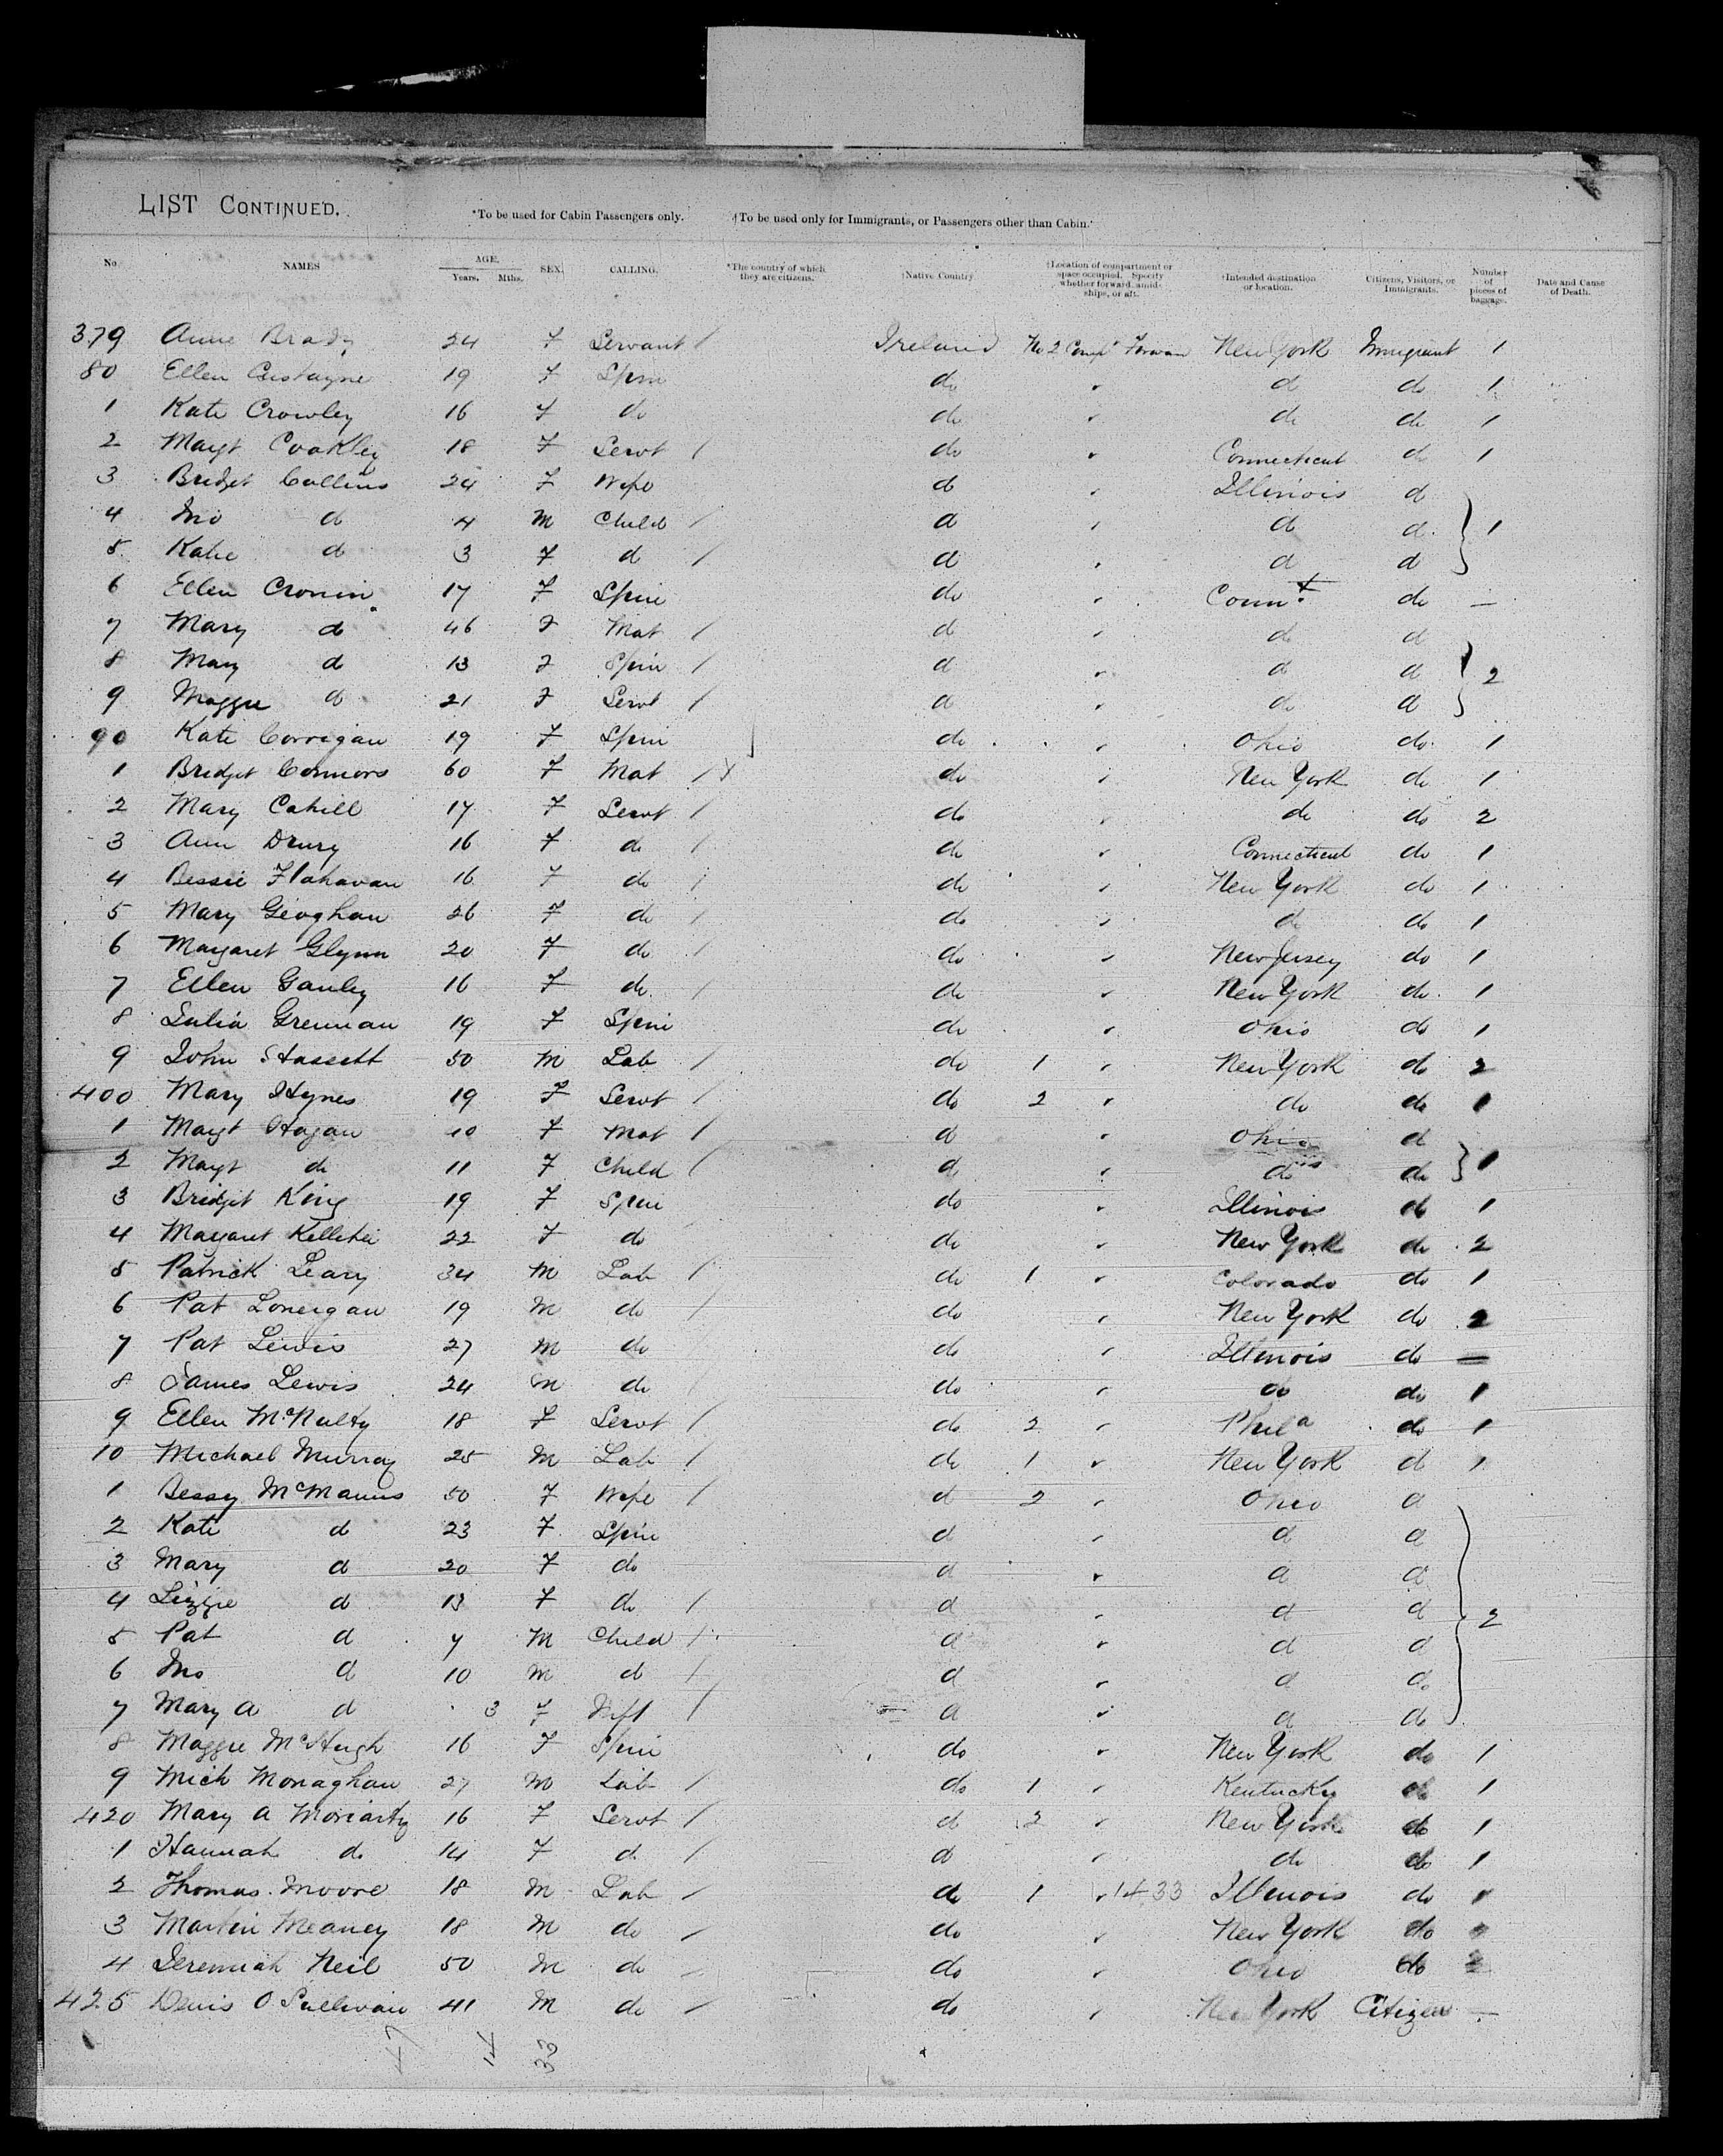 LIST CONTINUED.
*To be used for Cabin Passengers only. †To be used only for Immigrants, or Passengers other than Cabin.
No. NAMES AGE. Years. Mths. SEX. CALLING. *The country of which they are citizens. †Native Country †Location of compartment or space occupied. Specify whether forward, amidships, or aft. †Intended destination or location. Citizens, Visitors, or Immigrants. Number of pieces of baggage. Date and Cause of Death.
379 Anne Brady 24 F Servant / Ireland No 2 Compt Forward New York Immigrant 1
80 Ellen 19 F Spin do " d do 1
1 Kate Crowley 16 F do do " do do 1
2 Margt Coakley 18 F Servt / do " Connecticut do 1
3 Bridget Collins 24 F Wife d " Illinois d
4 Jno d 4 M Child / d " d d } 1
5 Katie d 3 F d / d " d d
6 Ellen Cronin 17 F Spin do " Connt do —
7 Mary do 46 F Mat / d " do d
8 Mary d 13 F Spin / d " d d } 2
9 Maggie d 21 F Servt / d " do d
90 Kate Corrigan 19 F Spin do " Ohio do 1
1 Bridget Connors 60 F Mat / do " New York do 1
2 Mary Cahill 17 F Servt / do " do do 2
3 Ann Drury 16 F do / do " Connecticut do 1
4 Bessie Flahavan 16 F do / do " New York do 1
5 Mary Geoghan 26 F do / do " d do 1
6 Margaret Glynn 20 F do / do " New Jersey do 1
7 Ellen Ganley 16 F do / do " New York do 1
8 Julia Grennan 19 F Spin do " Ohio do 1
9 John Hassett 50 M Lab / do 1 " New York do 2
400 Mary Hynes 19 F Servt / do 2 " do do 1
1 Margt Hagan F Mat / d " Ohio d
2 Margt do 11 F Child / d " do do } 1
3 Bridget King 19 F Spin do " Illinois do 1
4 Margaret Kelleher 22 F do do " New York do 2
5 Patrick Leary 34 M Lab / do 1 " Colorado do 1
6 Pat Lonergan 19 M do / do " New York do 2
7 Pat Lewis 27 M do do " Illinois do —
8 James Lewis 24 M do / do " do do 1
9 Ellen McNulty 18 F Servt / do 2 " Phila do 1
10 Michael Murray 25 M Lab / do 1 " New York d 1
1 Bessy McManus 50 F Wife / d 2 " Ohio d
2 Kate d 23 F Spin d " d d
3 Mary d 20 F do d " d d
4 Lizzie d 13 F do / d " d d } 2
5 Pat d 7 M Child / d " d d
6 Jno d 10 M d / d " d do
7 Mary A d 3 F Inft / d " d do
8 Maggie McHugh 16 F Spin do " New York do 1
9 Mich Monaghan 27 M Lab / do 1 " Kentucky do 1
420 Mary A Moriarty 16 F Servt / d 2 " New York do 1
1 Hannah do 14 F d / d " do do 1
2 Thomas Moore 18 M Lab / do 1 " 1433 Illinois do 1
3 Martin Meaney 18 M do / do " New York do
4 Jeremiah Neil 50 M do / do " Ohio do
425 Denis O Sullivan 41 M do / do " New York Citizen —
47 14 33